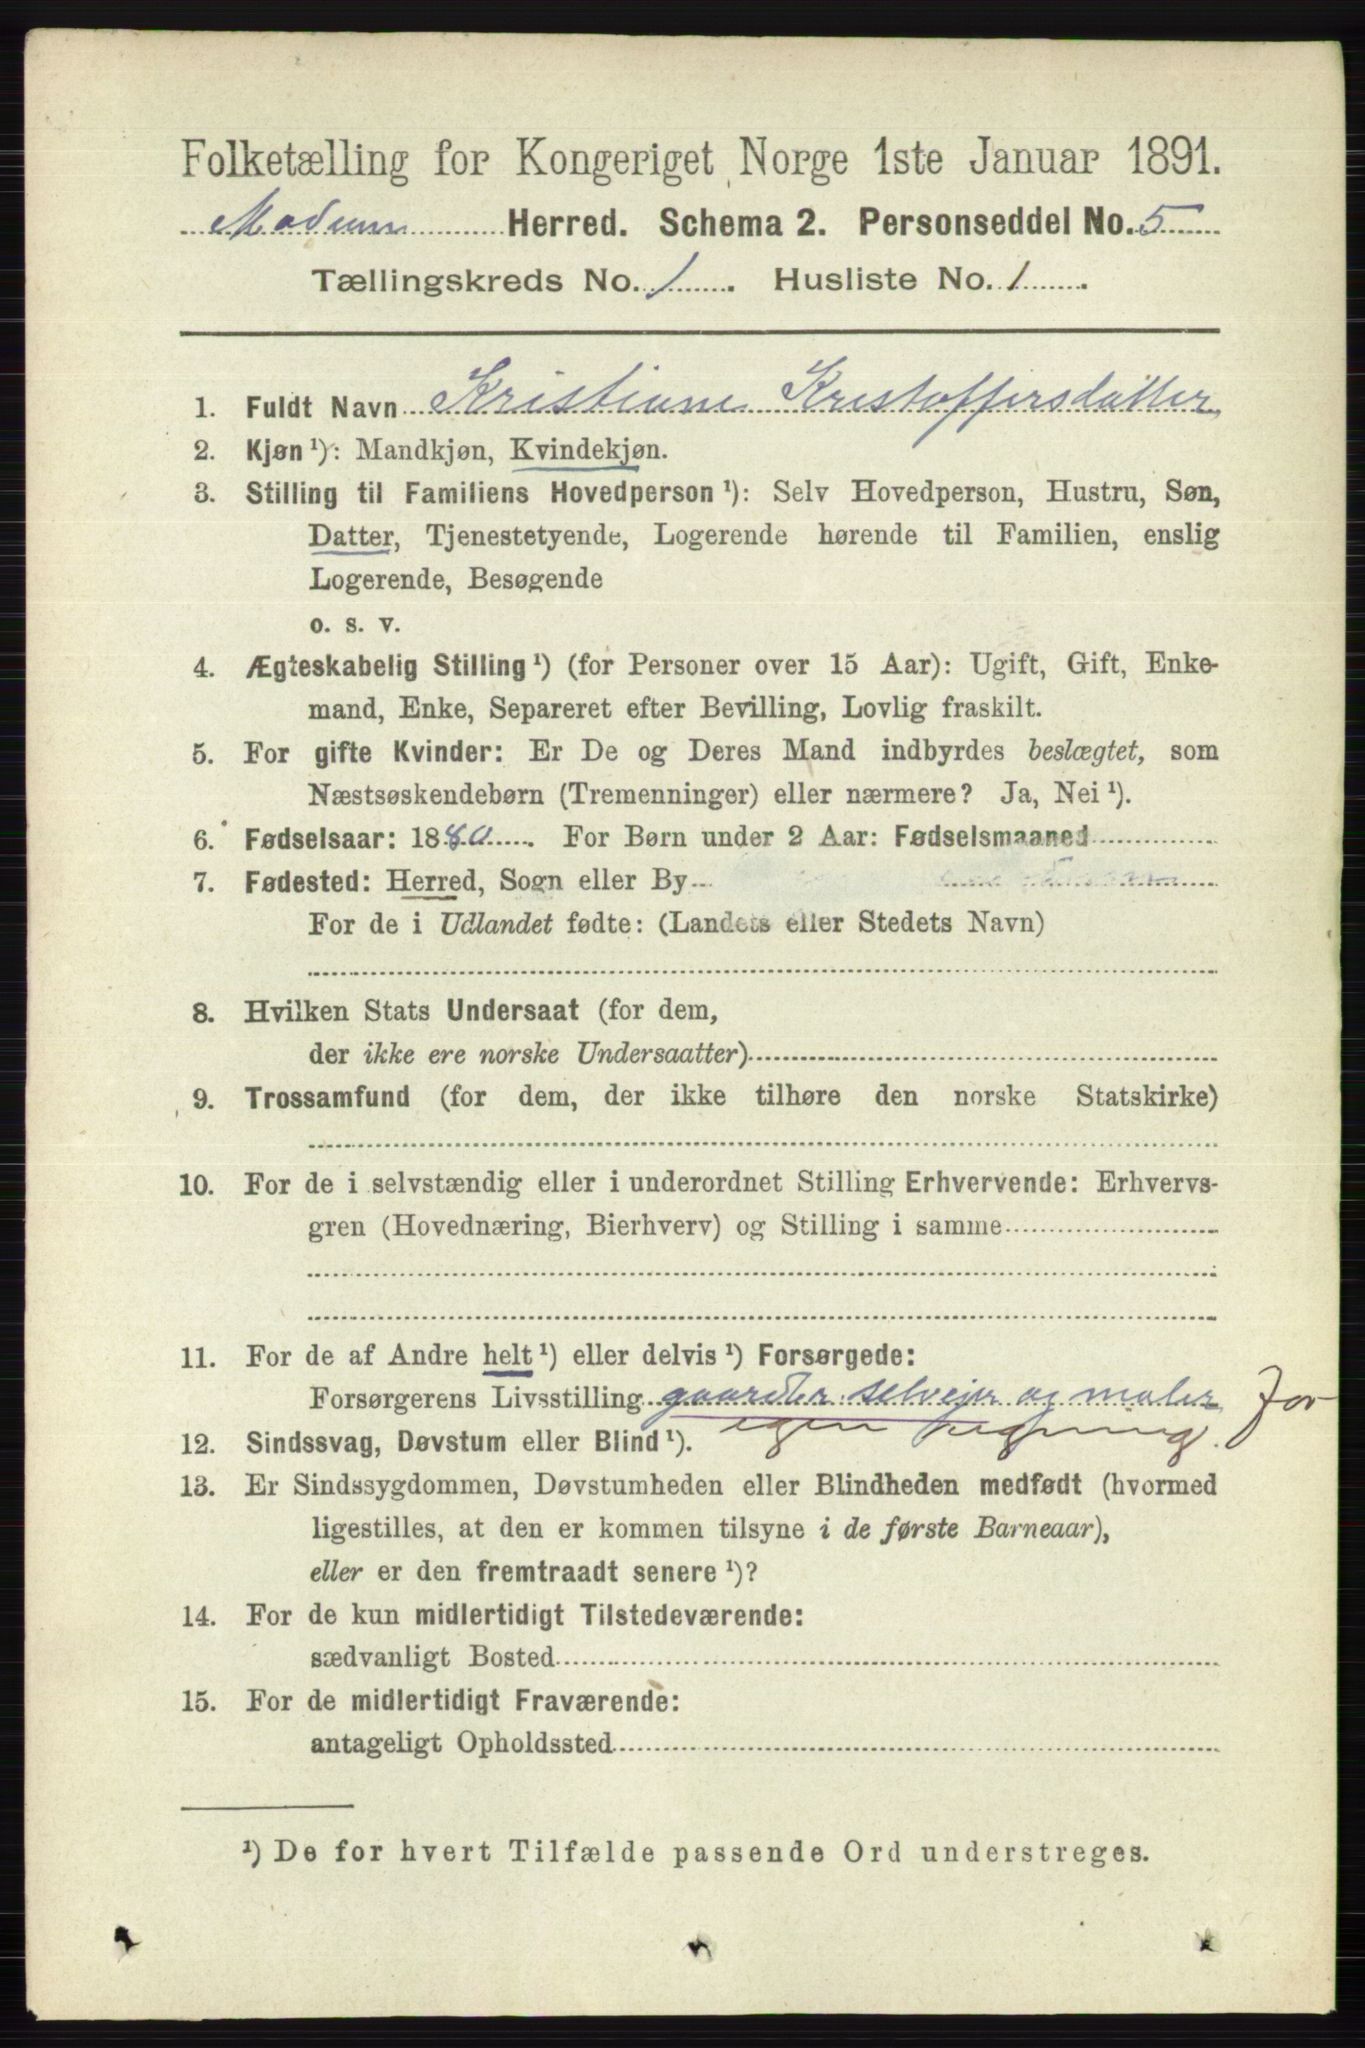 Folketælling for Kongeriget Norge 1ste Januar 1891.
Modum Herred. Schema 2. Personseddel No. 5
Tællingskreds No. 1. Husliste No. 1.
1. Fuldt Navn Kristiane Kristoffersdatter
2. Kjøn ¹): Mandkjøn, Kvindekjøn.
3. Stilling til Familiens Hovedperson ¹): Selv Hovedperson, Hustru, Søn,
Datter, Tjenestetyende, Logerende hørende til Familien, enslig
Logerende, Besøgende
o. s. v.
4. Ægteskabelig Stilling ¹) (for Personer over 15 Aar): Ugift, Gift, Enke-
mand, Enke, Separeret efter Bevilling, Lovlig fraskilt.
5. For gifte Kvinder: Er De og Deres Mand indbyrdes beslægtet, som
Næstsøskendebørn (Tremenninger) eller nærmere? Ja, Nei ¹).
6. Fødselsaar: 1880. For Børn under 2 Aar: Fødselsmaaned
7. Fødested: Herred, Sogn eller By
For de i Udlandet fødte: (Landets eller Stedets Navn)
8. Hvilken Stats Undersaat (for dem,
der ikke ere norske Undersaatter)
9. Trossamfund (for dem, der ikke tilhøre den norske Statskirke)
10. For de i selvstændig eller i underordnet Stilling Erhvervende: Erhvervs-
gren (Hovednæring, Bierhverv) og Stilling i samme
11. For de af Andre helt ¹) eller delvis ¹) Forsørgede:
Forsørgerens Livsstilling gaardbr. selveier og maler for
egen regning.
12. Sindssvag, Døvstum eller Blind ¹).
13. Er Sindssygdommen, Døvstumheden eller Blindheden medfødt (hvormed
ligestilles, at den er kommen tilsyne i de første Barneaar),
eller er den fremtraadt senere ¹)?
14. For de kun midlertidigt Tilstedeværende:
sædvanligt Bosted
15. For de midlertidigt Fraværende:
antageligt Opholdssted
¹) De for hvert Tilfælde passende Ord understreges.